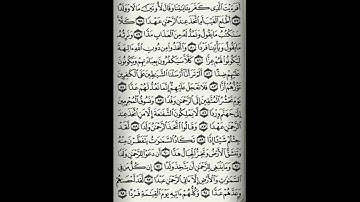 أَفَرَءَيْتَ ٱلَّذِى كَفَرَ بِـَٔايَٰتِنَا وَقَالَ لَأُوتَيَنَّ مَالًا وَوَلَدًا ٧٧
أَطَّلَعَ ٱلْغَيْبَ أَمِ ٱتَّخَذَ عِندَ ٱلرَّحْمَٰنِ عَهْدًا ٧٨ كَلَّا
سَنَكْتُبُ مَا يَقُولُ وَنَمُدُّ لَهُۥ مِنَ ٱلْعَذَابِ مَدًّا ٧٩ وَنَرِثُهُۥ
مَا يَقُولُ وَيَأْتِينَا فَرْدًا ٨٠ وَٱتَّخَذُوا۟ مِن دُونِ ٱللَّهِ ءَالِهَةً
لِّيَكُونُوا۟ لَهُمْ عِزًّا ٨١ كَلَّا سَيَكْفُرُونَ بِعِبَادَتِهِمْ وَيَكُونُونَ
عَلَيْهِمْ ضِدًّا ٨٢ أَلَمْ تَرَ أَنَّآ أَرْسَلْنَا ٱلشَّيَٰطِينَ عَلَى ٱلْكَٰفِرِينَ
تَؤُزُّهُمْ أَزًّا ٨٣ فَلَا تَعْجَلْ عَلَيْهِمْ إِنَّمَا نَعُدُّ لَهُمْ عَدًّا ٨٤
يَوْمَ نَحْشُرُ ٱلْمُتَّقِينَ إِلَى ٱلرَّحْمَٰنِ وَفْدًا ٨٥ وَنَسُوقُ ٱلْمُجْرِمِينَ
إِلَىٰ جَهَنَّمَ وِرْدًا ٨٦ لَّا يَمْلِكُونَ ٱلشَّفَٰعَةَ إِلَّا مَنِ ٱتَّخَذَ عِندَ
ٱلرَّحْمَٰنِ عَهْدًا ٨٧ وَقَالُوا۟ ٱتَّخَذَ ٱلرَّحْمَٰنُ وَلَدًا ٨٨ لَّقَدْ
جِئْتُمْ شَيْـًٔا إِدًّا ٨٩ تَكَادُ ٱلسَّمَٰوَٰتُ يَتَفَطَّرْنَ مِنْهُ
وَتَنشَقُّ ٱلْأَرْضُ وَتَخِرُّ ٱلْجِبَالُ هَدًّا ٩٠ أَن دَعَوْا۟ لِلرَّحْمَٰنِ وَلَدًا
٩١ وَمَا يَنۢبَغِى لِلرَّحْمَٰنِ أَن يَتَّخِذَ وَلَدًا ٩٢ إِن كُلُّ مَن فِى
ٱلسَّمَٰوَٰتِ وَٱلْأَرْضِ إِلَّآ ءَاتِى ٱلرَّحْمَٰنِ عَبْدًا ٩٣ لَّقَدْ أَحْصَىٰهُمْ
وَعَدَّهُمْ عَدًّا ٩٤ وَكُلُّهُمْ ءَاتِيهِ يَوْمَ ٱلْقِيَٰمَةِ فَرْدًا ٩٥